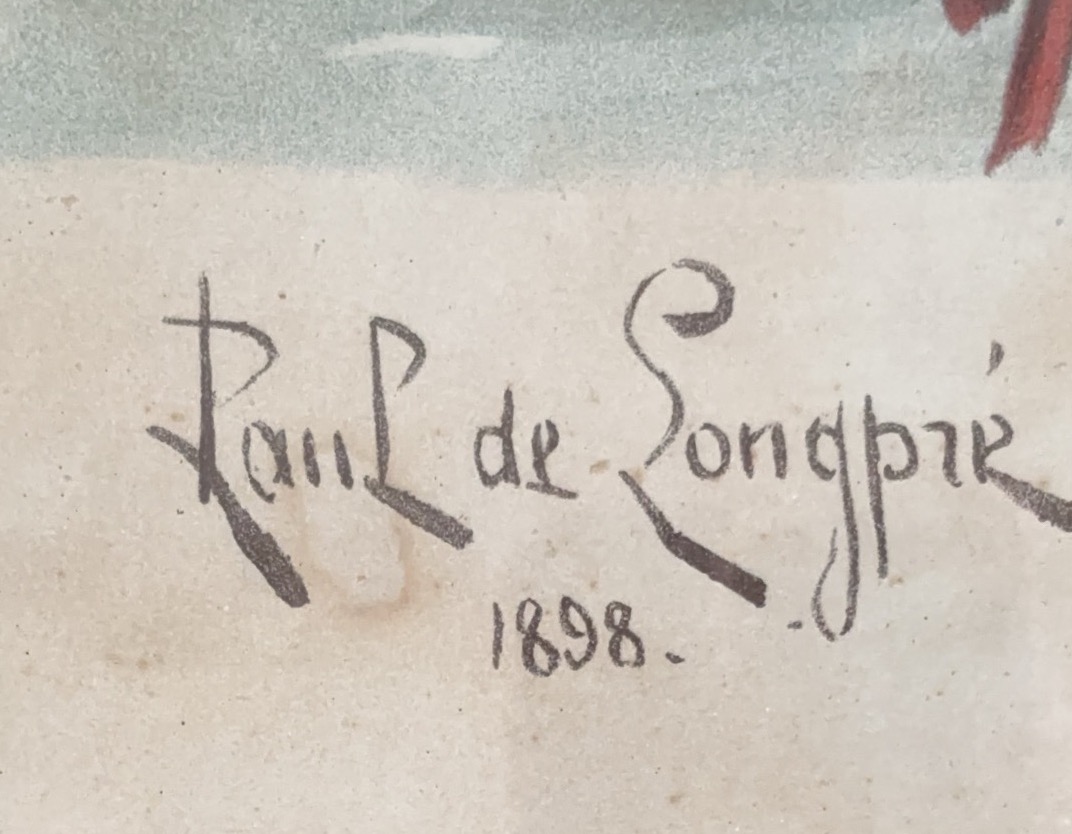 Paul de Longpré
1898.